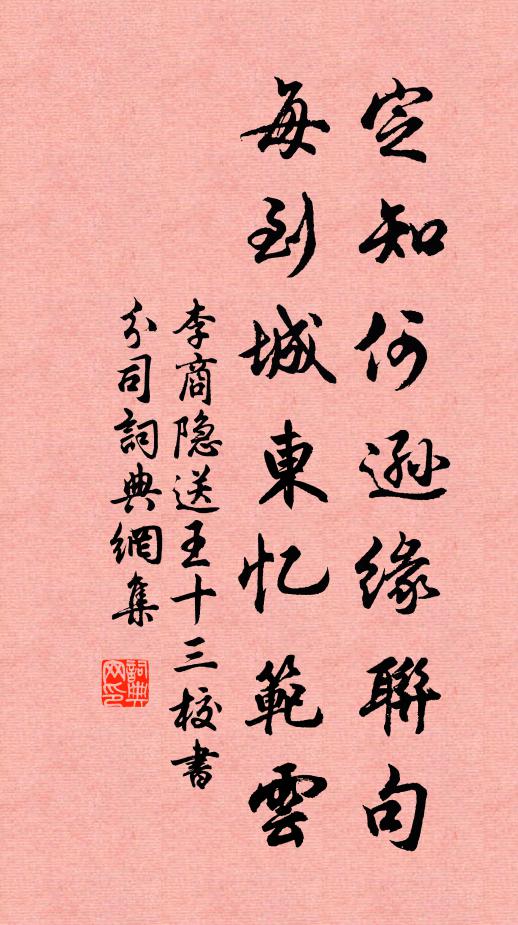 定知何遜缘聯句
每到城東忆範雲
李商隐送王十三校書
分司詞典網集
詞典網印